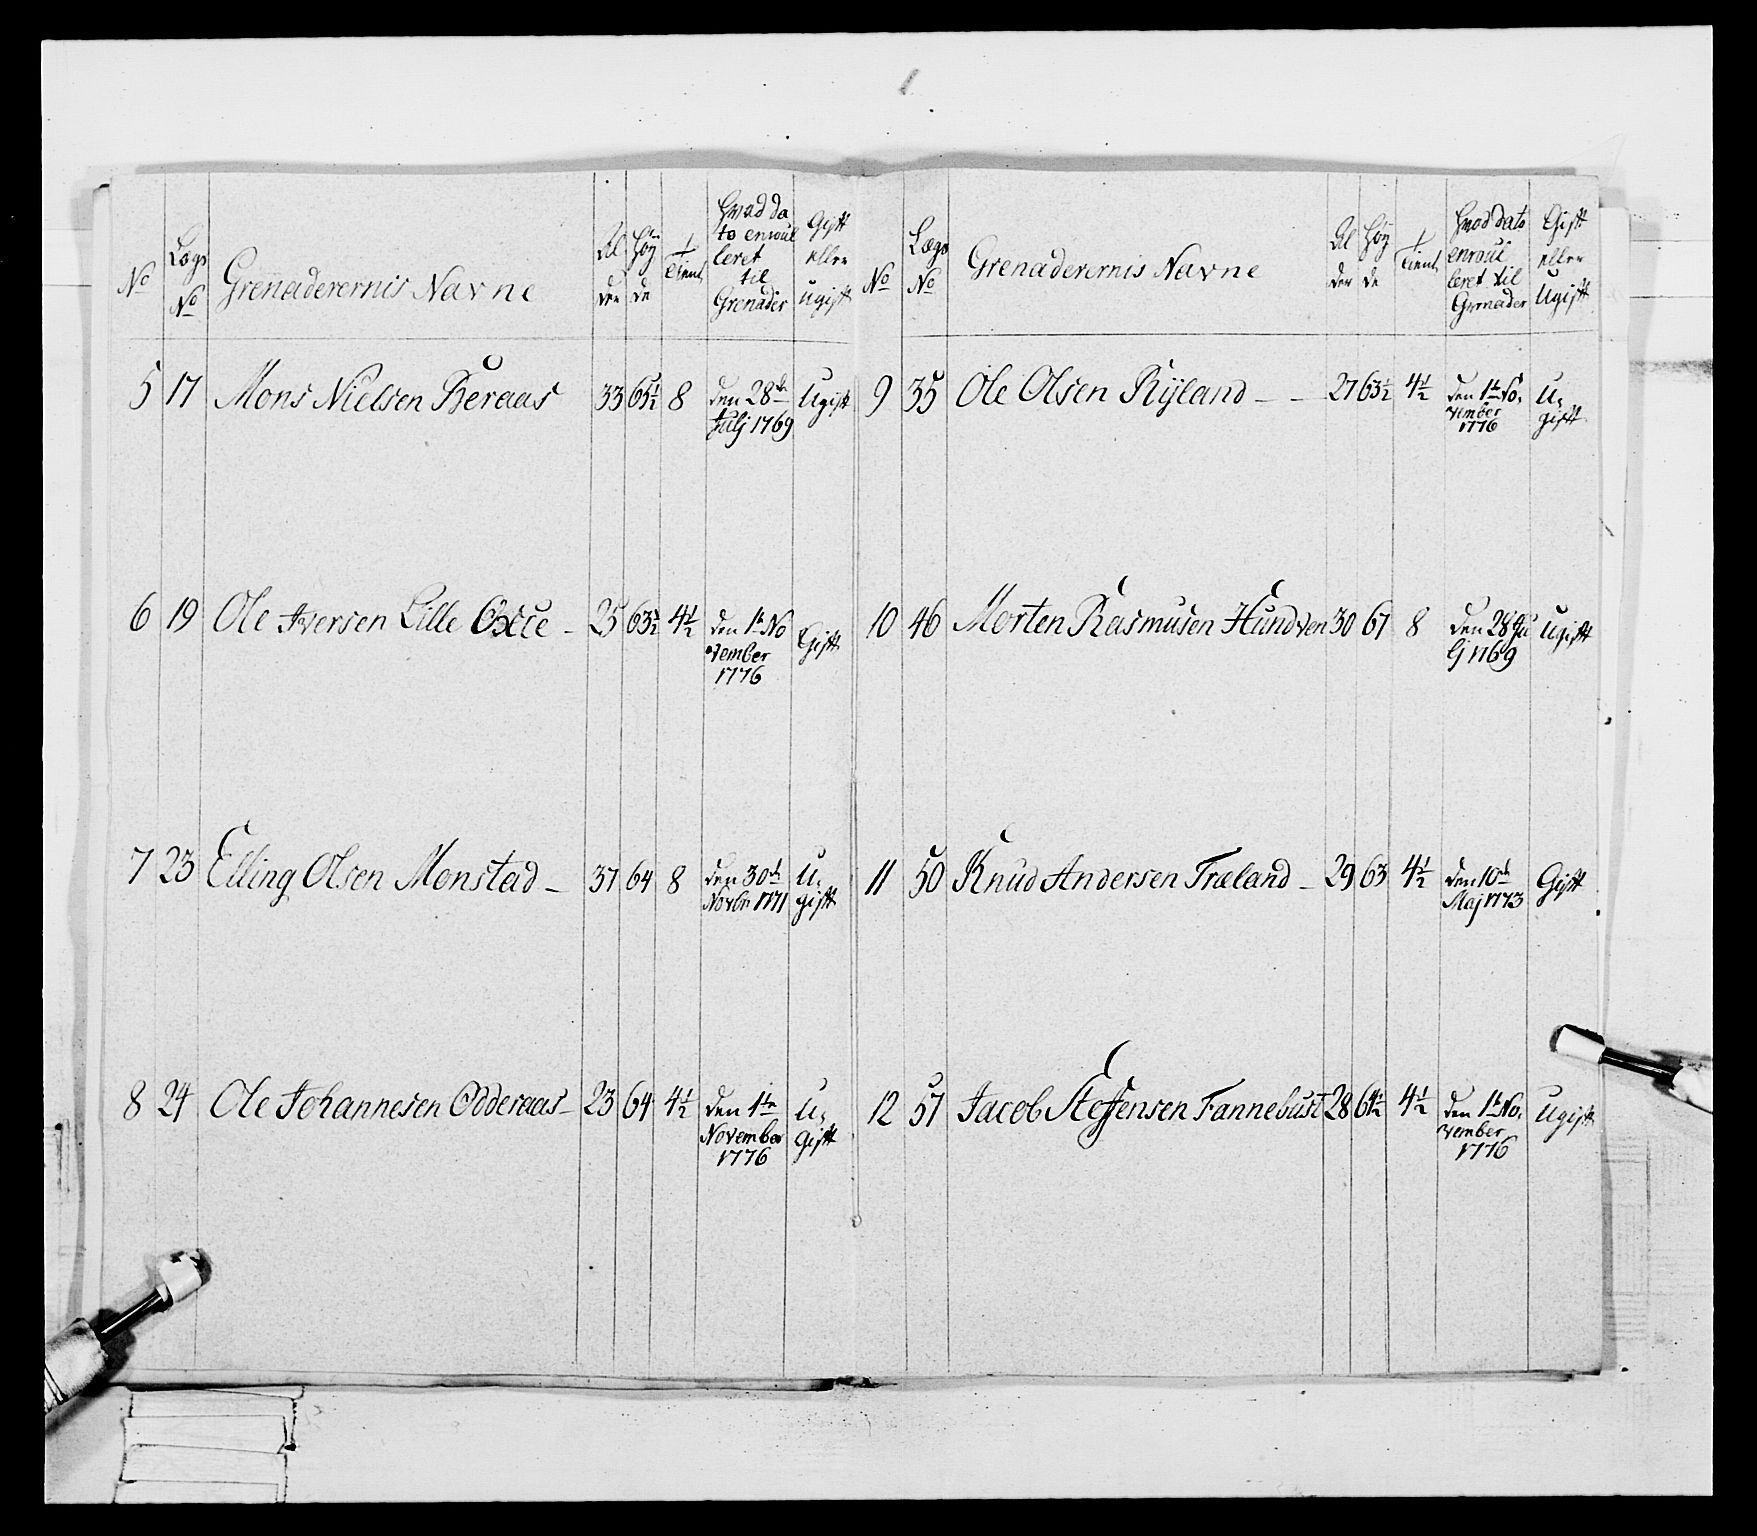 No Lægs No Grenaderernis Navne Al der Høy de Tient Hvad da to enroul leret til Grenader Gift eller ugift
5 17 Mons Nielsen Beraas 33 65½ 8 den 28de Julj 1769 Ugift
6 19 Ole Iversen Lille 25 63½ 4½ den 1te No vember 1776 Gift
7 23 Elling Olsen Monstad 37 64 8 den 30te Novbr 1771 U, gift
8 24 Ole Johannesen Odderaas 23 64 4½ den 1te November 1776 U, gift
No Lægs No Grenaderernis Navne Al der Høy de Tient Hvad dato enroul leret til Grenader Gift eller Ugift
9 35 Ole Olsen Ryland 27 63½ 4½ den 1te No, vember 1776 U, gift
10 46 Morten Rasmusen Hundven 30 67 8 den 28 Ju lj 1769 Ugift
11 50 Knud Andersen Træland 29 63 4½ den 10de Maj 1773 Gift
12 57 Jacob Steffensen Fannebust 28 64½ 4½ den 1te No, vember 1776 Ugift